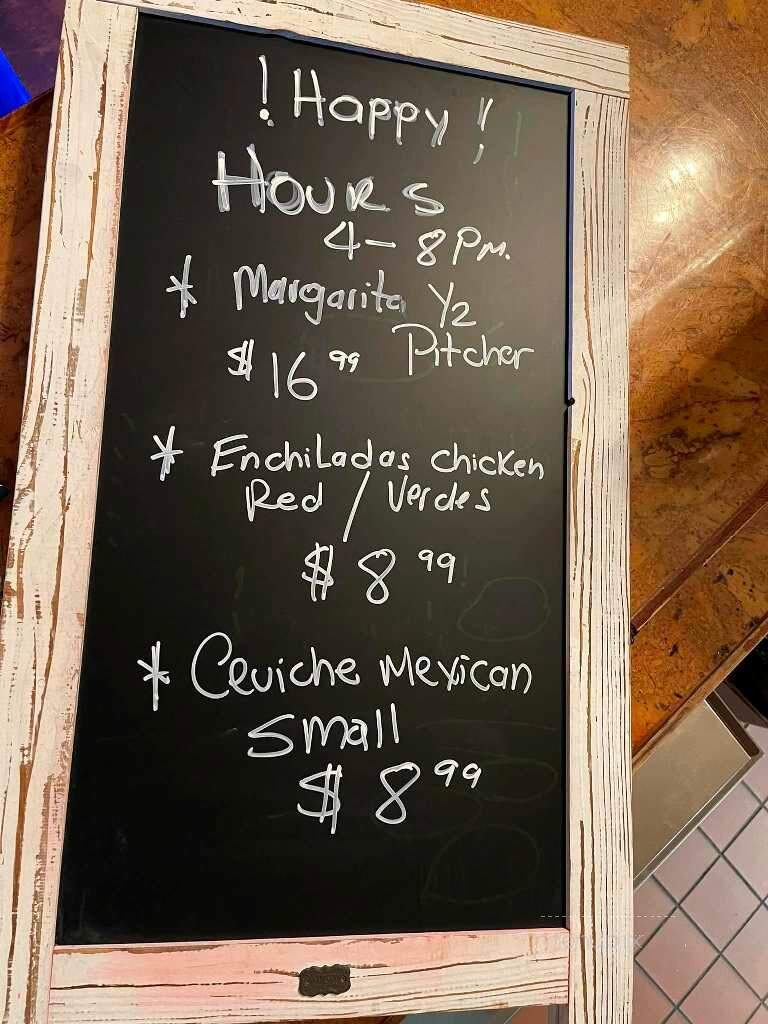 ! Happy !
Hours
4 - 8 Pm.
* Margarita 1/2
Pitcher
$16.99
* Enchiladas chicken
Red / Verdes
$8.99
* Ceviche Mexican
Small
$8.99